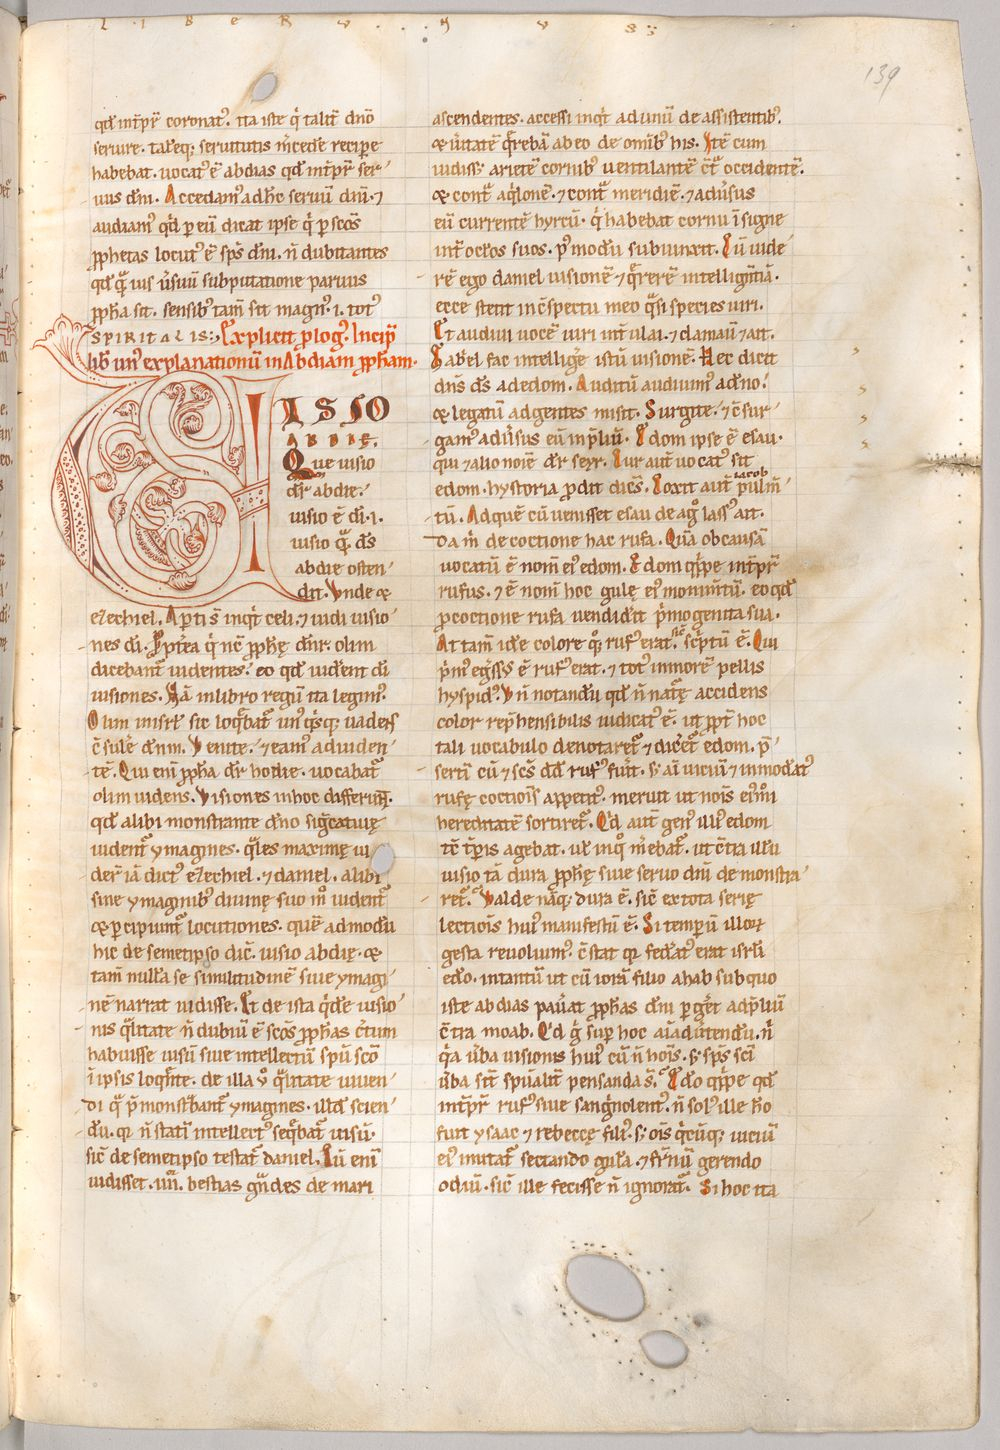 L I B E R V . . V
139
qd̄ int̄p̄r̄ coronatꝰ. ita iste q̇ talit̄ dn̄o
seruire. taleq; seruitutis m̄cedē recipe
habebat. uocatꝰ ē abdias qd̄ int̄p̄r̄ ser-
uus dn̄i. Accedamꝰ ad h̄c seruū dn̄i. ⁊
audiamꝰ qd̄ ꝑ eū dicat ipse q̇ ꝑ scōs
ꝓphetas locutꝰ ē sp̄s dn̄i. n̄ dubitantes
subputatione paruus
ꝓpha sit. sensibꝰ tam̄ sit magnꝰ .i. totꝰ
SPIRITALIS. Explicit ꝓlogꝰ. Incip̄
lib̄ unꝰ explanationū in Abdiam ꝓpham.
VISIO
ABDIE.
Que uisio
dr̄ abdie.
uisio ē di .i.
uisio q̄ ds̄
abdie osten-
dit. Vnde ⁊
eZechiel. Apti s̄ inqt celi. ⁊ uidi uisio-
nes di. Ppt̄ea q̇ nc̄ ꝓphę dn̄r. olim
dicebant̄ uidentes. eo qd̄ uident di
uisiones. Nā in libro regū ita legimꝰ.
Olim in isrl̄ sic loq̄bat̄ unꝰ q̇sq; uadens
c̄sulē dn̄m. Venite. ⁊ eamꝰ ad uiden-
tē. Qui eni ꝓpha dr̄ hodie. uocabat̄
olim uidens. Visiones in hoc differunt.
qd̄ alibi monstrante dn̄o significatiuę
uident̄ ymagines. q̄les maximę ui-
der̄ iā dictꝰ eZechiel. ⁊ daniel. alibi
sine ymaginibꝰ diuinę suo m̊ uident̄
⁊ percipiunt̄ locutiones. quē admodū
hic de semetipso dic̄. uisio abdię. ⁊
tam̄ nullā se similitudinē siue ymagi-
nē narrat uidisse. Et de ista q̇dē uisio-
nis q̄litate n̄ dubiū ē scōs ꝓphas c̄tum
habuisse uisū siue intellectū spū scō
in ipsis loq̄nte. de illa ů q̄litate uiuen-
di q̄ p̄monstrbant̄ ymagines. illd̄ scien-
dū. qꝛ n̄ statī intellectꝰ seq̄bat̄ uisū.
sic̄ de semetipso testat̄ daniel. Cū eni
uidisset .iiii. bestias gn̄des de mari
ascendentes. accessi inqt ad unū de assistentibꝰ.
⁊ ůitatē q̄rebā ab eo de omībꝰ his. Itē cum
uidissꝫ arietē cornibꝰ uentilantē c̄t̄ occidentē.
⁊ cont̄ aq̇lonē. ⁊ cont̄ meridiē. ⁊ aduersus
eū currentē hyrcū. q̇ habebat cornu īsigne
int̄ oclos suos. pꝰ modū subiunxit. Cū uide-
rē ego daniel uisionē ⁊ q̄rerē intelligentiā.
ecce stetit in c̄spectu meo q̄si species uiri.
Et audiui uocē uiri int̄ ulai. ⁊ clamauit ⁊ ait.
Gabriel fac intelligē istū uisionē. Hec dicit
dn̄s ds̄ ad edom. Auditū audiuimꝰ a dn̄o.
⁊ legatū ad gentes misit. Surgite. ⁊ c̄sur-
gamꝰ aduersus eū in p̄liū. Edom ipse ē esau.
qui ⁊ alio noīe dr̄ seyr. Cur aut̄ uocatꝰ sit
edom. hystoria ꝓdit dicēs. Coxit aut̄ iacob pulm̄-
tū. Ad quē cū uenisset esau de agº lassꝰ ait.
Da m̄ de coctione hac rufa. Quā ob causā
uocatū ē nom̄ eiꝰ edom. Edom q̇ppe int̄p̄r̄
rufus. ⁊ ē nom̄ hoc gulę eiꝰ monim̄tū. eo qd̄
ꝓ coctione rufa uendidit p̄mogenita sua.
At tam̄ idē colore q̊ rufꝰ erat. sic̄ sc̄ptū ē. Qui
p̄mꝰ egr̄ssꝰ ē rufꝰ erat. ⁊ totꝰ in morē pellis
hyspidꝰ. Vn̄ notandū qd̄ n̄ natę accidens
color rep̄hensibilis iudicatꝰ ē. ut ꝓpt̄ hoc
tali uocabulo denotaret̄ ⁊ diceret̄ edom. p̄-
sertī cū ⁊ scs̄ dd̄ rufꝰ fuit. sꝫ
rufę coctiōis appetitꝰ. meruit ut nōis
hereditatē sortiret̄. Qd̄ aut̄ genꝰ illiꝰ edom
tē tp̄ris agebat. uł inq̊ m̄ebat̄. ut c̄tra illū
uisio tā dura ꝓphę siue seruo dn̄i demonstra-
ret̄. Valde naq; dura ē. sic̄ ex tota serię
lectiōis huiꝰ manifestū ē. Si tempū illoꝝ
gesta reuoluimꝰ. c̄stat qꝛ fedatꝰ erat isrl̄i
edō. intantū ut cū iorā filio ahab sub quo
iste abdias pauerat ꝓphas dn̄i pgeret ad p̄liū
c̄tra moab. Qd̄ g̊ suꝑ hoc
q̇a ůba uisionis huiꝰ cū n̄ hōis. sꝫ sp̄s scī
ůba sn̄t spūalit̄ pensanda s̄. Edō q̇ppe qd̄
int̄p̄r̄ rufꝰ siue sanguinolentꝰ. n̄ solꝰ ille h̄o
fuit ysaac ⁊ rebeccę filiꝰ. sꝫ oīs q̇cūq; uiciū
eiꝰ imitat̄ sectando gulā. ⁊ fr̄nū gerendo
odiū. sic̄ ille fecisse n̄ ignorat̄. Si hoc ita